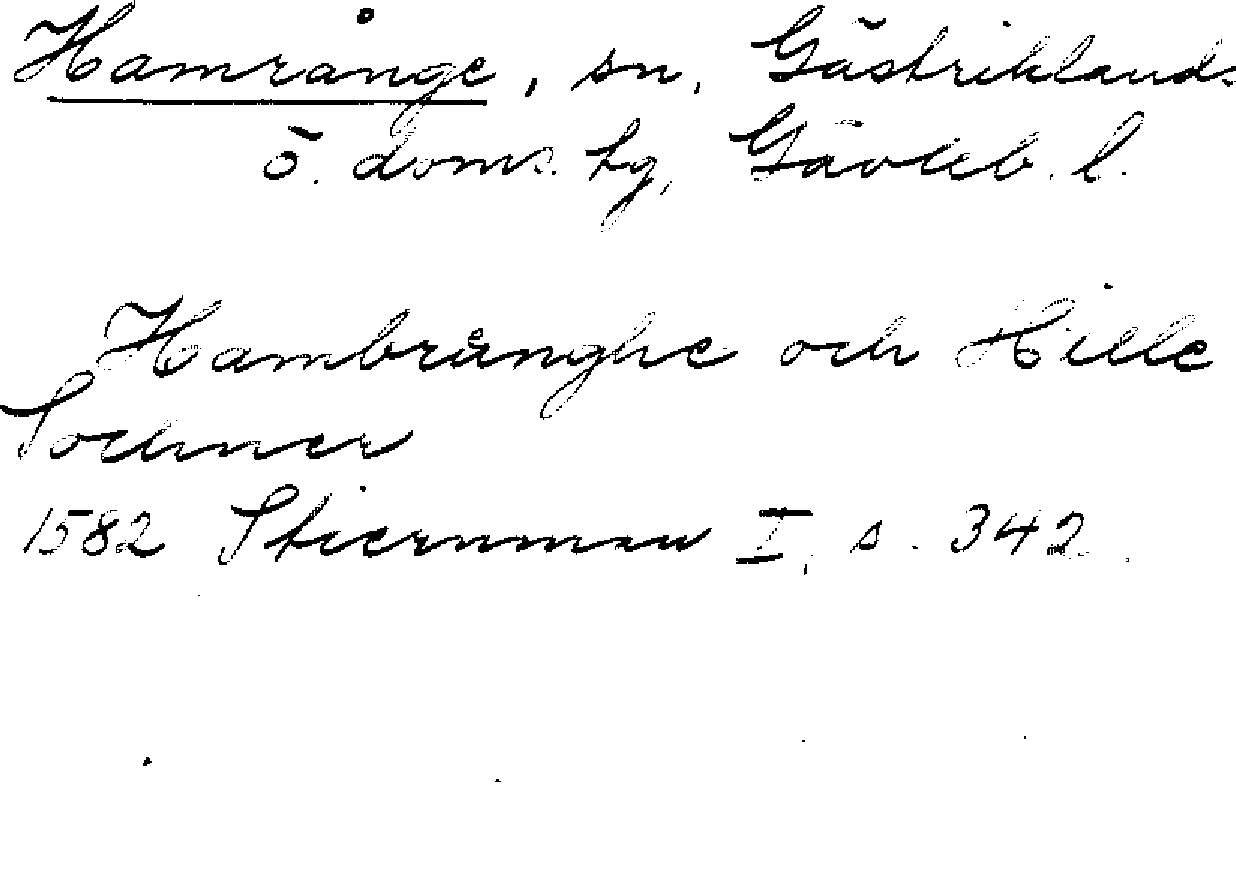 Hamrånge, sn, Gästriklands
ö. doms. tg, Gävleb. l.
Hambrånghe och Hille
Sochner
1582 Stiernman I, s. 342.